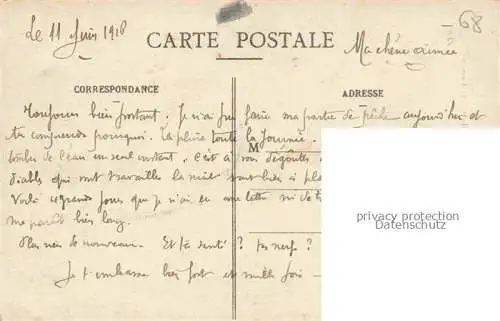 Le 11 Juin 1918
68
CARTE POSTALE
Ma chère aimée
CORRESPONDANCE
ADRESSE
Toujours bien portant. Je n'ai pu faire ma partie de pêche aujourd'hui et
tu comprends pourquoi. La pluie toute la journée.
M
tomber de l'eau un seul instant. C'est à vous dégoûter
diables qui ont travaillé la nuit sont
Voilà grand jours que je n'ai eu une lettre ni de
me paraît bien long.
Plus rien de nouveau. Et ta santé ? tes nerfs ?
Je t'embrasse bien fort et mille fois
privacy protection
Datenschutz